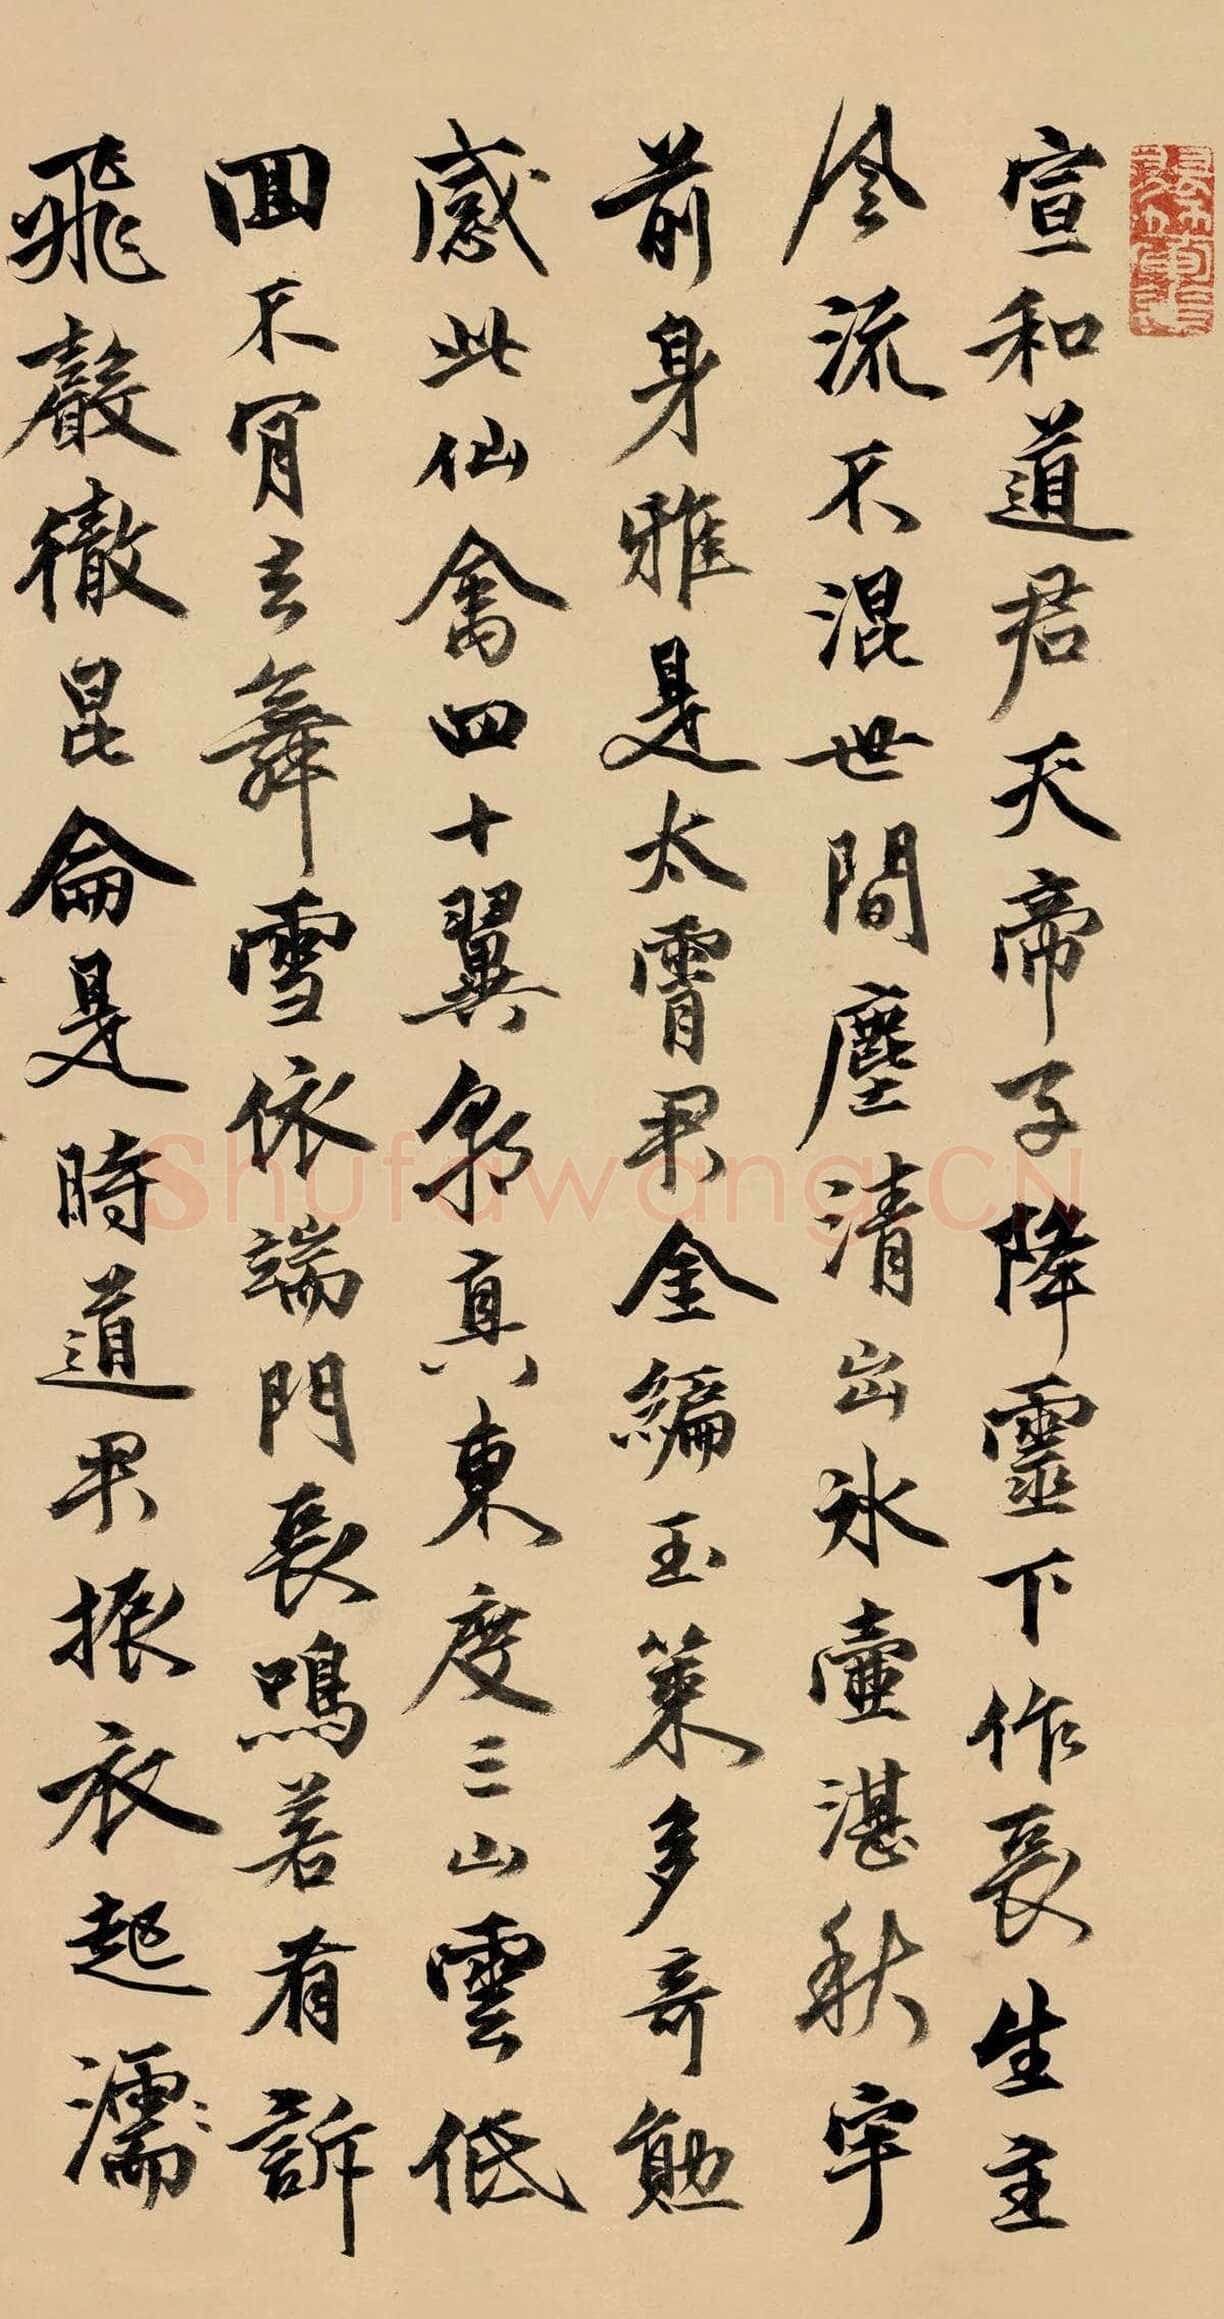 宣和道君天帝子降靈下作長生主
風流不混世間塵清出冰壺湛秋宇
前身雅是太霄君金編玉策多奇勛
感此仙禽四十翼朝真東度三山雲低
回不肯去舞雪依端門長鳴若有訴
飛聲徹昆侖是時道君振衣起濡〻
Shufawang.CN